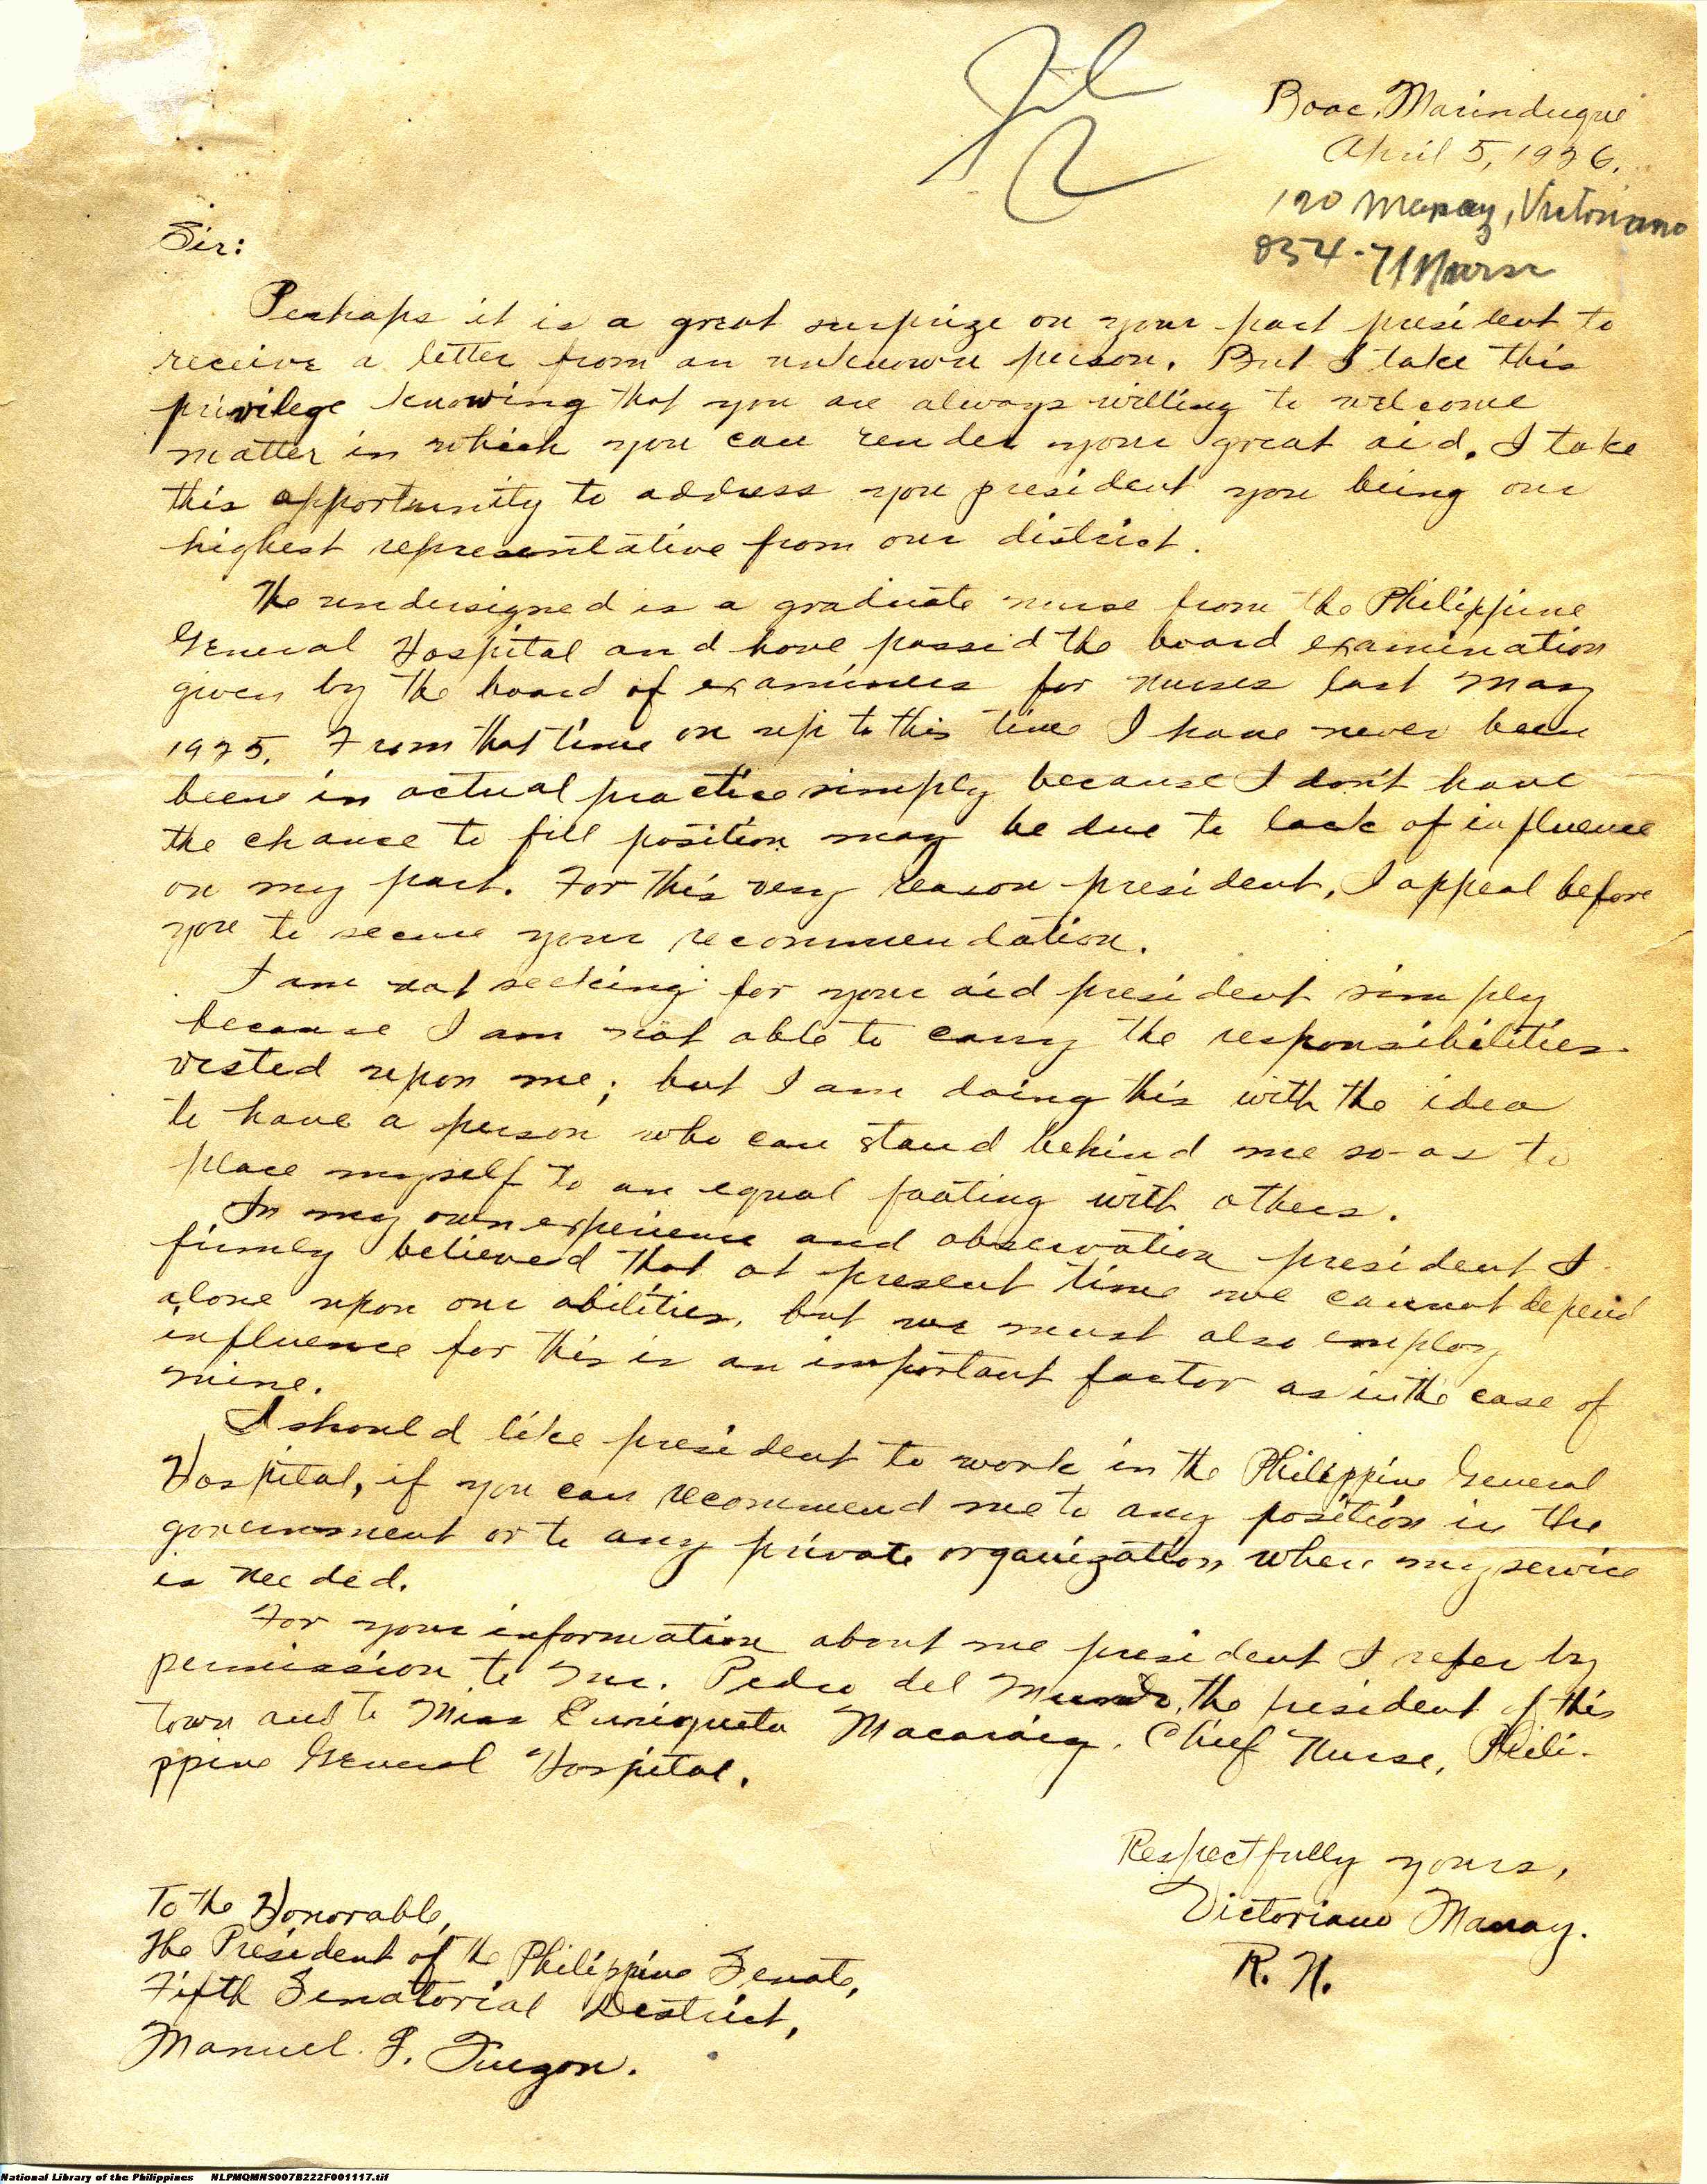 File
Boac, Marinduque
April 5, 1926.
Manay, Victoriano
Sir:
Perhaps it is a great surprize on your part president to
receive a letter from an unknown person. But I take this
privilege knowing that you are always willing to welcome
matter in which you can render your great aid. I take
this opportunity to address you president you being our
highest representative from our district.
The undersigned is a graduate nurse from the Philippine
General Hospital and have passed the board examination
given by the board of examiners for nurses last May
1925. From that time on up to this time I have never been
been in actual practice simply because I don't have
the chance to fill position may be due to lack of influence
on my part. For this very reason president, I appeal before
you to secure your recommendation.
I am not seeking for your aid president simply
because I am not able to carry the responsibilities
vested upon me; but I am doing this with the idea
to have a person who can stand behind me so as to
place myself to an equal footing with others.
In my own experience and observation president I
firmly believed that at present time we cannot depend
alone upon our abilities, but we must also employ
influence for this is an important factor as in the case of
mine.
I should like president to work in the Philippine General
Hospital, if you can recommend me to any position in the
government or to any private organization where my service
is needed.
For your information about me president I refer by
permission to Mr. Pedro del Mundo, the president of this
town and to Miss Enriqueta Macaraig, Chief Nurse, Phili-
ppine General Hospital.
Respectfully yours,
Victoriano Manay.
R. N.
To the Honorable,
The President of the Philippine Senate,
Fifth Senatorial District,
Manuel L. Quezon.
National Library of the Philippines NLPMQMNS007B222F001117.tif